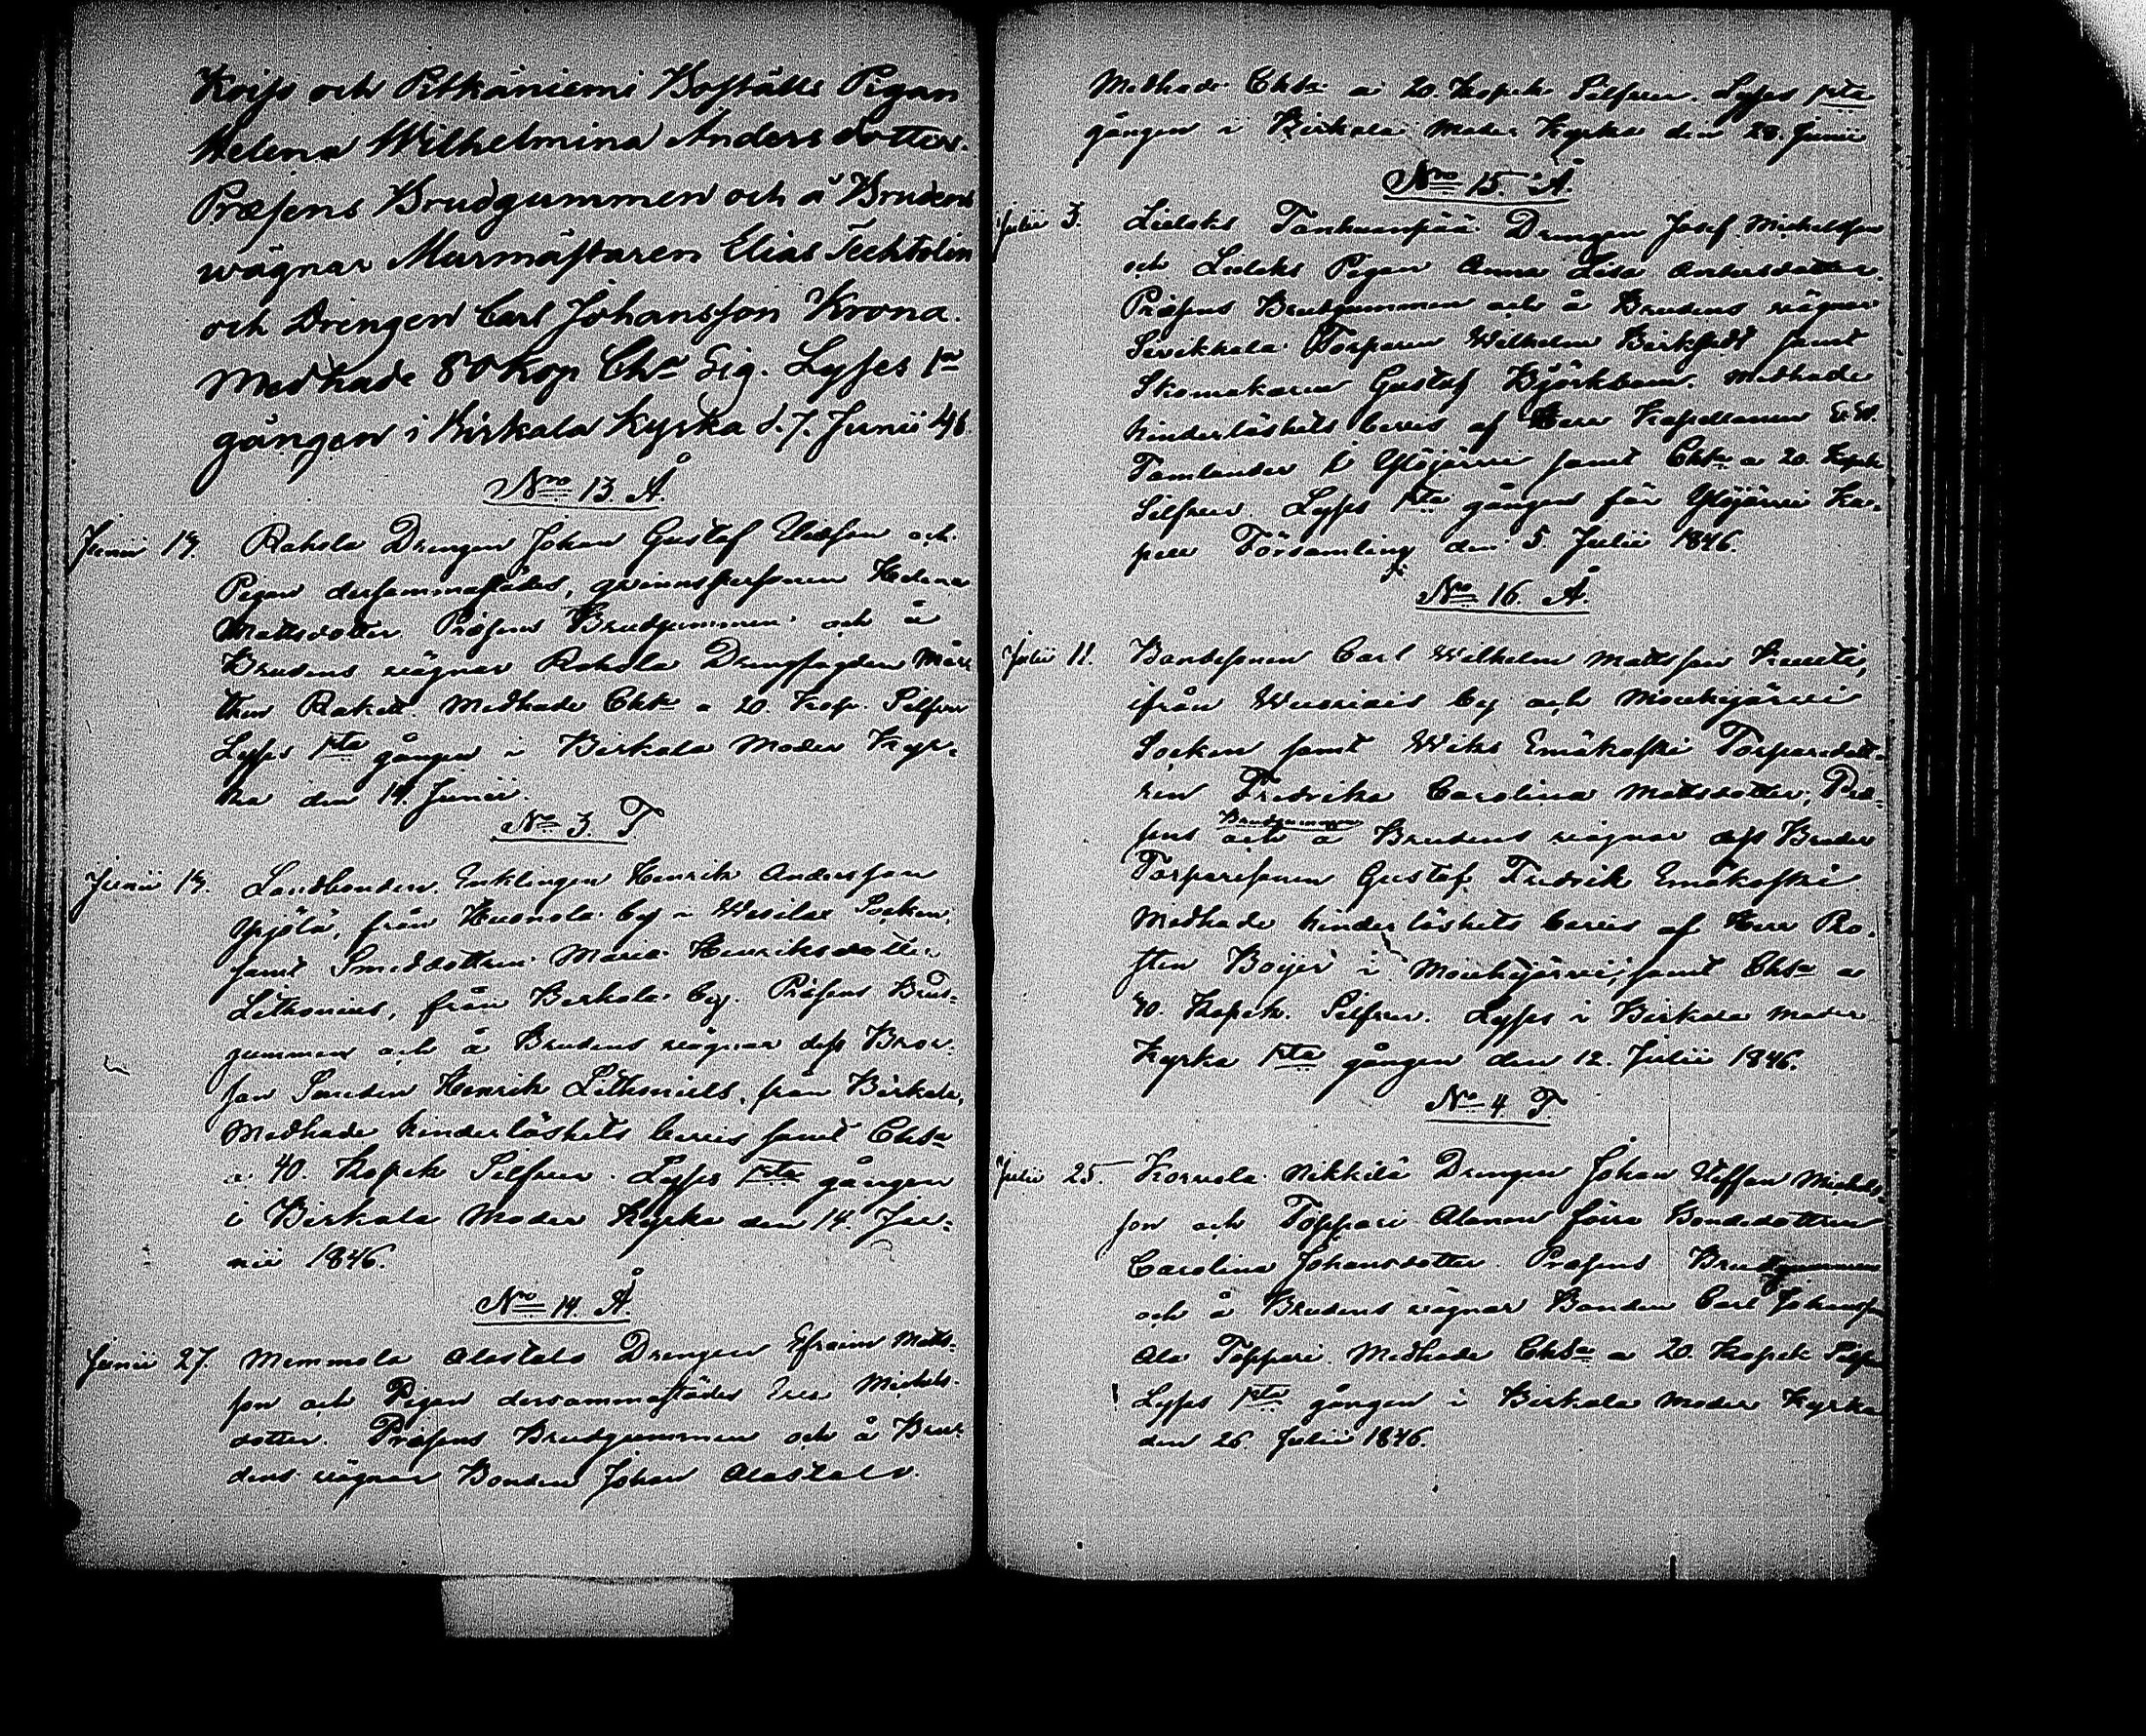 Koifs och Pitkäniemi Boställs Pigan
Helena Wilhelmina Anders dotter.
Præsens Brudgummen och å Brudens
wägnar Murmästaren Elias
och Drengen Carl Johansson Krona.
Medhade 80 Kop Cha Sig. Lyses 1a
gången i Birkala Kyrka d. 7. Junii 46.
Nro 13 Å.
Junii 13. Rahola Drengen Johan Gustaf och
Pigan dersammastädes, qvinnspersonen Helena
Mattsdotter Præsens Brudgummen och å
Brudens vägnar Rahola Drengfogden Mår-
then Raket. Medhade Chta a 20 Kop. Silfver
Lyses 1sta gången i Birkala Moder Kyr-
ka den 14. Junii.
No 3. T
Junii 13. Landbonden, Enklingen Henrik Andersson
Yrjölä, från by i Wesilax Socken,
samt Smeddottren Maria Henriksdotter
Lithonius, från Birkala by. Præsens Brud-
gummen och å Brudens vägnar dess Bror-
son Henrik från Birkala,
Medhade hinderlöshets bevis samt Chta
a 40. Kopek Silfver. Lyses 1sta gången
i Birkala Moder Kyrka den 14. Ju-
nii 1846.
Nro 14. Å.
Junii 27. Memmola Alastalo Drengen Efraim Matts-
son och Pigan dersammastädes Eva Michels-
dotter. Præsens Brudgummen och å Bru-
dens vägnar Bonden Johan Alastalo.
Medhade Chta a 20. Kopek Silfver. Lyses 1sta
gången i Birkala Moder Kyrka den 28. Junii
Nro 15. Å.
Julii 3. Lielaks Tanhuanpää Drengen Josef Michelsson
och Lielaks Pigan Anna Lisa Andersdotter.
Præsens Brudgummen och å Brudens vägnar
Siivikkala Torparen Wilhelm samt
Skomakaren Gustaf Björkbom. Medhade
hinderlöshets bevis af Herr Kapellanen
i Ylöjärvi samt Chta a 20. Kopek
Silfver. Lyses 1sta gången för Ylöjärvi Ka-
pell Församling den 5. Julii 1846.
No 16. Å.
Julii 11. Bondesonen Carl Wilhelm Mattsson
ifrån by och Mouhijärvi
Socken samt Wiks Emäkoski Torparedott-
ren Fredrika Carolina Mattsdotter, Præ-
sens Brudgummen och å Brudens vägnar dess Broder
Torparesonen Gustaf Fredrik Emäkoski
Medhade hinderlöshets bevis af Herr Pro-
sten Boijer i Mouhijärvi, samt Chta a
40. Kopek. Silfver. Lyses i Birkala Moder
Kyrka 1sta gången den 12. Julii 1846.
No 4. T
Julii 25. Korvola Nikkilä Drengen Johan Steffan Michels-
son och Toppari Alanen förre Bondedottren
Carolina Johansdotter. Præsens Brudgummen
och å Brudens vägnar Bonden Carl Johansson
Ala Toppari. Medhade Chta a 20. Kopek Silfv
Lyses 1sta gången i Birkala Moder Kyrka
den 26. Julii 1846.